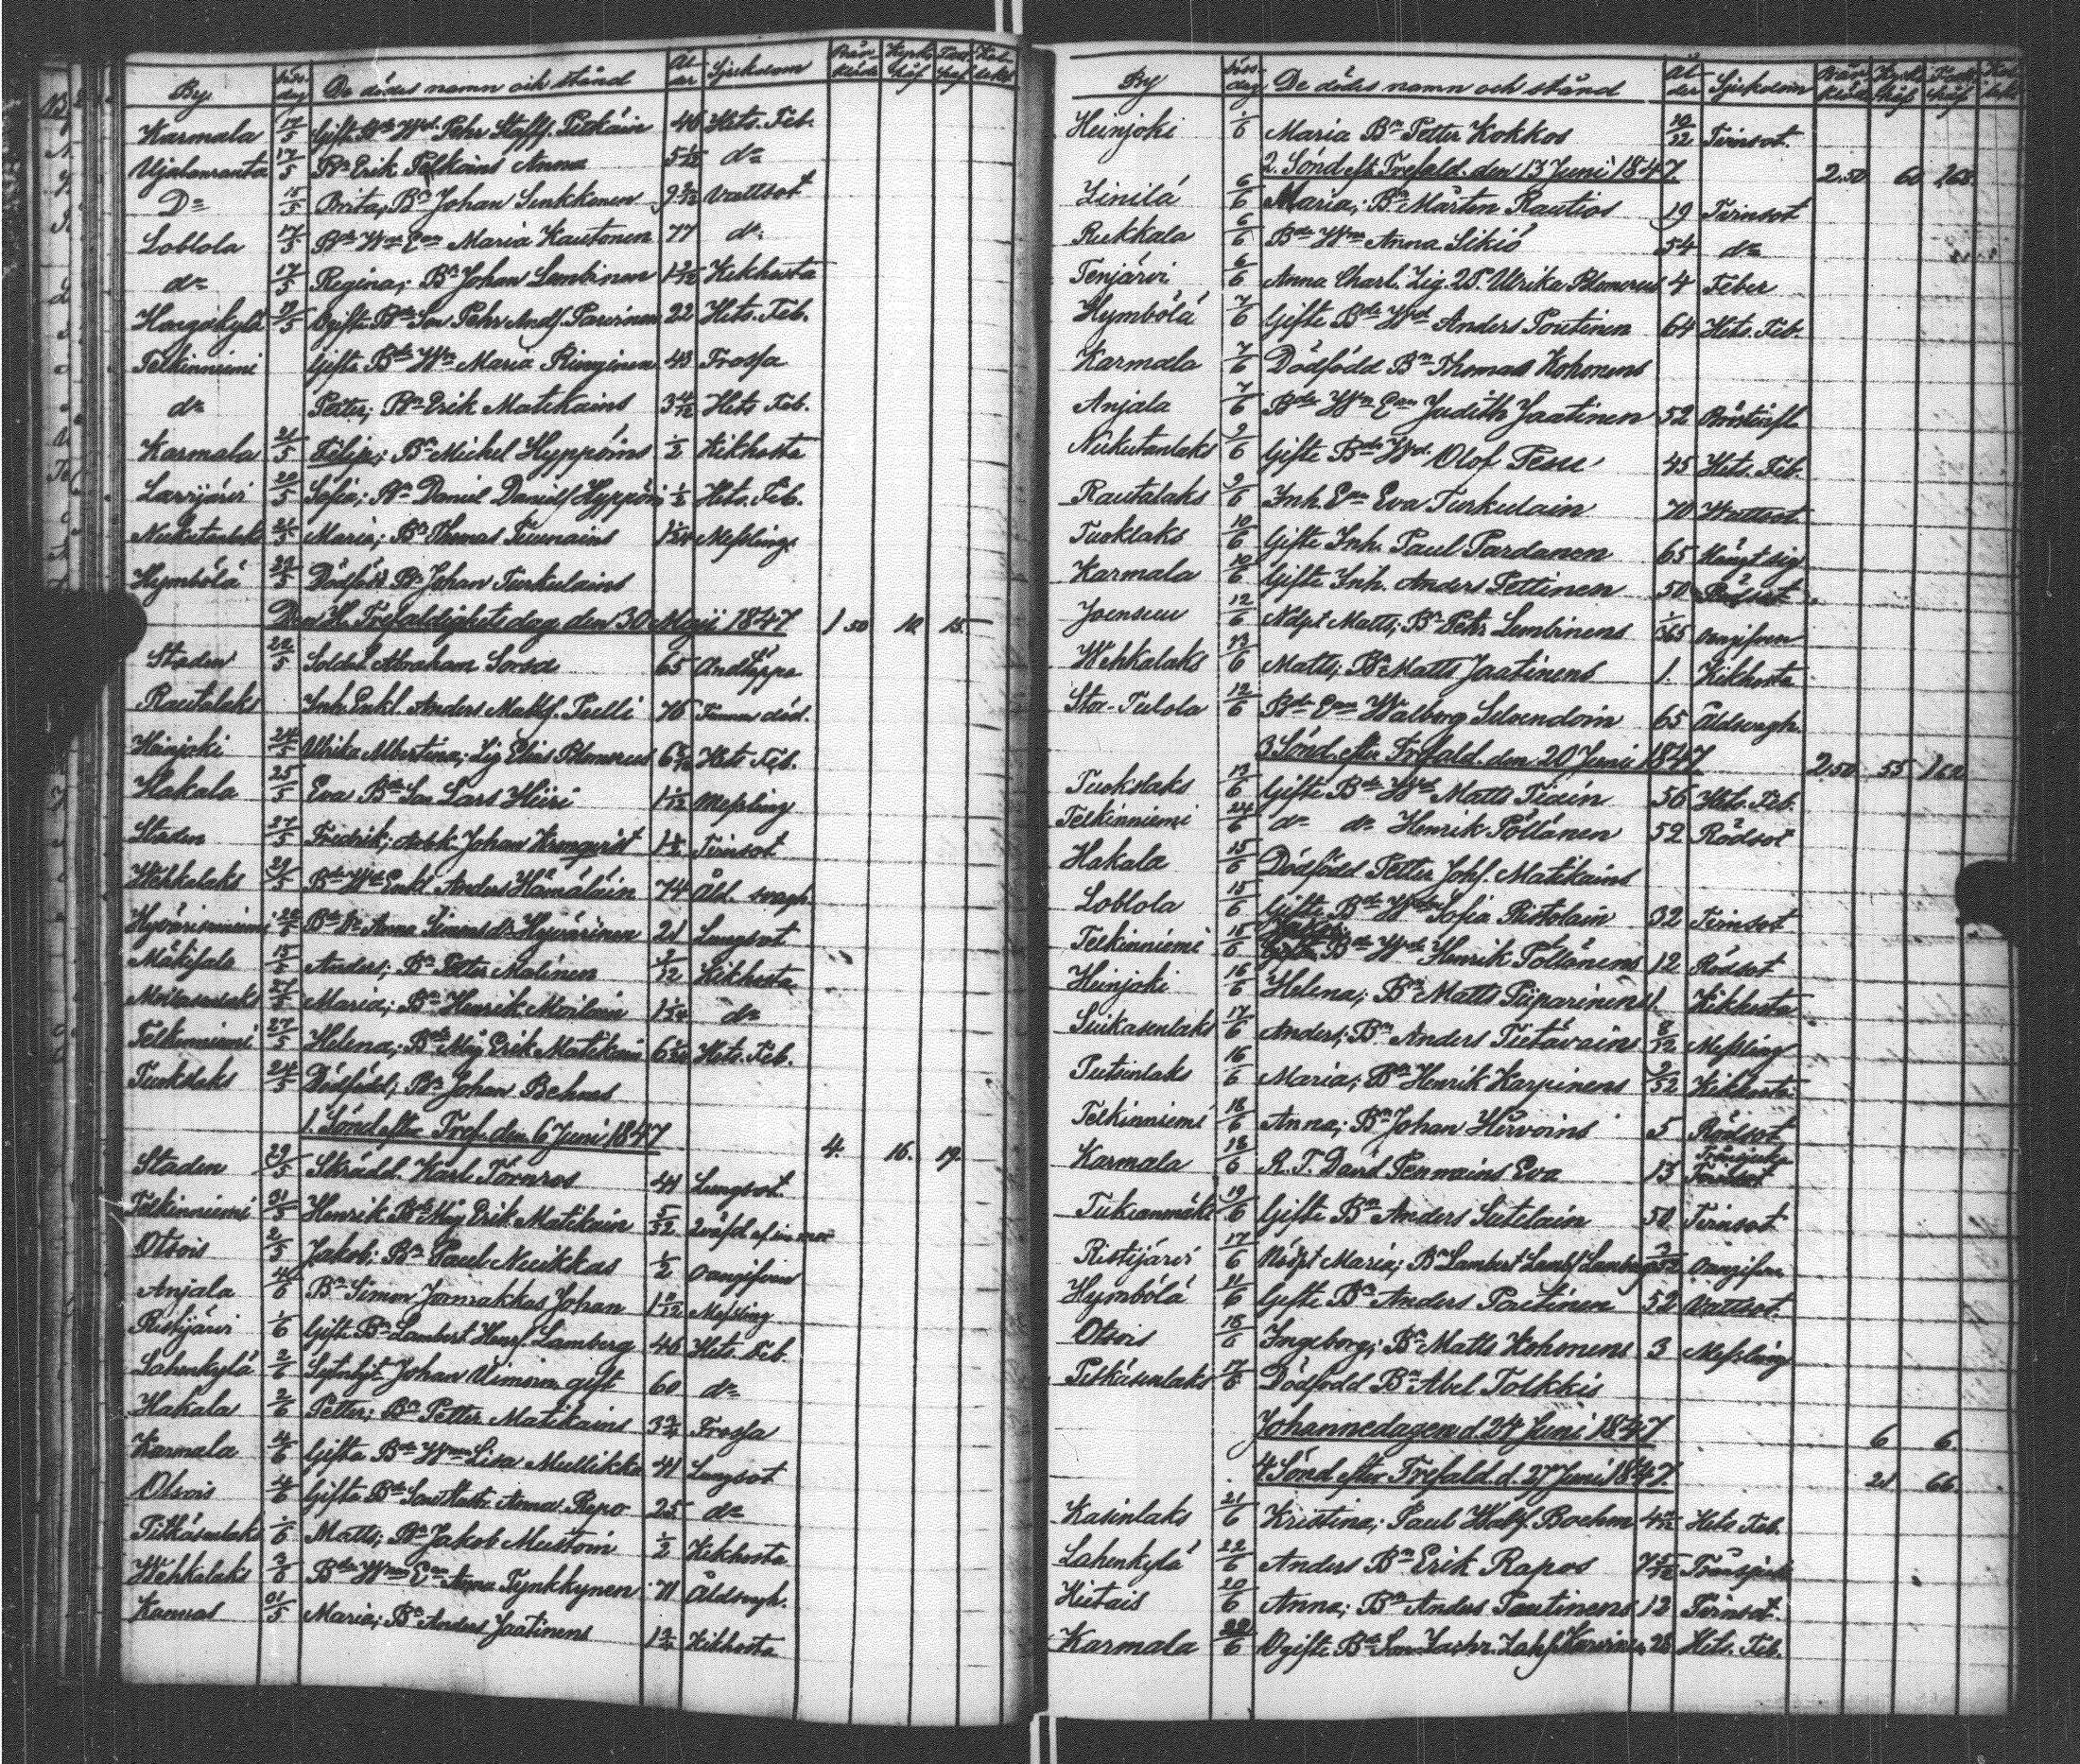 By Döds dag De dödes namn och stånd Ål der Sjukdom
Karmala 17/5 Gifte Bde Wrd Pehr Staff. Pitkäin 46 Hets. Feb.
Ujalanranta 17/5 Bn Erik Pelkoins Anna 5 1/12 do
Do 15/5 Brita; Bn Johan Sinkkonen Vattsot
Loblola 17/5 Bde Wna Ean Maria Kautonen 77 do
do 17/5 Regina; Bn Johan Lembinen 1 2/12 Kikhosta
19/5 Ogifte Bde Son Pehr Andf. Parvinen 22 Hets. Feb.
Telkinniemi Gifte Bde Wn Maria Ringinen 43 Frossa
do Petter; Bn Erik Matikains 3 4/12 Hets Feb.
Karmala 21/5 Filip; Bn Michel Hyppöins 1/2 Kikhosta
20/5 Sofia; Bn Daniel Danielf Hyppöin 1/2 Hets. Feb.
Niukutanlaks 21/5 Maria; Bn Thomas Messling
Hymbölä 22/5 Dödfödd Bn Johan Turkulains
Den H. Trefaldighets dag den 30 Maji 1847 1 50 10 15
Staden 22/5 Sold. Abraham Sorsa 65 Andtäppa
Rautalaks Inh. Enkl. Anders Mattsf. Pulli 76 Funnen död.
Heinjoki 24/5 Ulrika Albertina; Lig Elias Blomerus Hets Feb.
Hakala 25/5 Eva Bde Son Lars Hiiri 1 1/12 Messling
Staden 27/5 Fredrik; Johan Kronqvist Tvinsot
Wehkalaks 29/5 Bde Wd Enkl Anders Hämäläin 74 Åld. svagh.
Hyvärisniemi Bde Dr Anna Simonsdr Hyvärinen 21 Lungsot
15/5 Anders; Bn Petter Malinen 9/12 Kikhosta
27/5 Maria; Bn Henrik Moilain 1 1/24 do
Telkinniemi 27/5 Helena; Bde Måg Erik Matikain Hets. Feb.
Tuokslaks 24/5 Dödfödd; Bn Johan Behms
1. Sönd efter Tref. den 6 Juni 1847 4. 16. 19.
Staden 29/5 Skrädd. Karl Törnros 44 Lungsot
Telkinniemi 31/5 Henrik Bde Måg Erik Matikain 5/52 qväfd af sin mor
Otsois 2/5 Jakob; Bn Paul Nuikkas 1/2 Oangifven
Anjala 4/6 Bn Simon Jormakkas Johan Messling
Ristijärvi 1/6 Gifte Bn Lambert Henrf. Lamberg 46 Hets. Feb.
Lahenkylä 2/6 Johan Uimon gift 60 do
Hakala 2/6 Petter; Bn Petter Matikains Frossa
Karmala 4/6 Gifta Bde Wnan Lisa Mullikka 41 Lungsot
Otsois 4/6 Gifta Bde Son Anna Repo 25 do
Pitkäsenlaks 1/6 Matts; Bn Jakob Mustoin 1/2 Kikhosta
Wehkalaks 3/6 Bde Wnan Ean Anna Tynkkynen 71 Åldsvgh.
Kamas 31/5 Maria; Bn Anders Jaatinens Kikhosta
By Döds dag De dödes namn och stånd Ål der Sjukdom
Heinjoki 1/6 Maria Bn Petter Kokkos 10/12 Tvinsot.
2. Sönd eft Trefald. den 13 Junii 1847 2.50 60 2.68
Linilä 6/6 Maria; Bn Mårten Rautios 19 Tvinsot
Rukkala 6/6 Bde Wn Anna Sikiö 54 do
Tenjärvi 6/6 Anna Charl. Lig. Ulrika Blomerus 4 Feber
Hymbölä 7/6 Gifte Bde Wrd Anders Poutinen 64 Hets. Feb.
Karmala 7/6 Dödfödd Bn Thomas Kohonens
Anjala 7/6 Bde Wn Ean Judith Jaatinen 52 Bröstinfl.
Niukutanlaks 9/6 Gifte Bde Wrd Olof Pesu 45 Hets. Feb.
Rautalaks 9/6 Inh. Ean Eva Turkulain 70 Wattsot
Tuokslaks 10/6 Gifte Inh. Paul Pardanen 65 Hängt sig
Karmala 10/6 Gifte Inh. Anders Pettinen 50 Rödsot
Joensuu 12/6 Ndpt Matts; Bn Pehr Lembinens 1/365 Oangifven
Wehkalaks 13/6 Matts; Bn Matts Jaatinens 1. Kikhosta
Stor-Pulola 12/6 Bde Ean Walborg Silvendoin 65 Åldsvagh.
3. Sönd. efter Trefald. den 20 Junii 1847 2.50 55 1.60
Tuokslaks 13/6 Gifte Bde Wrd Matts Tiäin 56 Hets. Feb.
Telkinniemi 24/6 do do Henrik Pöllänen 52 Rödsot
Hakala 15/6 Dödfödd Petter Johf. Matikains
Loblola 15/6 Gifta Bde Sofia Ristolain 32 Tvinsot
Jakob
Telkinniemi 15/6 Bde Wrd Henrik Pöllänens 12 Rödsot
Heinjoki 16/6 Helena; Bn Matts Piiparinens 1. Kikhosta
Suikasenlaks 17/6 Anders; Bn Anders Tietäväins 8/12 Messling
Putsinlaks 16/6 Maria; Bn Henrik Karpinens 9/52 Kikhosta
Telkinniemi 18/6 Anna; Bn Johan Hirvoins 5 Rödsot
Karmala 18/6 R. T. David Penmains Eva 13 Tvinsot
19/6 Gifte Bn Anders Sutelain 50 Tvinsot
Ristijärvi 17/6 Nödpt Maria; Bn Lambert Lambf Lambergs Oangifven
Hymbölä 11/6 Gifte Bn Anders Pautinen 52 Vattsot.
Otsois 18/6 Ingeborg; Bn Matts Kohonens 3 Messling
Pitkäsenlaks 17/6 Dödfödd Bn Abel Tolkkis
Johannedagen d. 24 Juni 1847 6 6
4 Sönd. efter Trefald. d. 27 Juni 1847. 21 66
Kasinlaks 21/6 Kristina; Paul Boehm Hets. Feb.
Lahenkylä 22/6 Anders Bn Erik Rapos
Hutais 20/6 Anna; Bn Anders Pautinens 12 Tvinsot.
Karmala 22/6 Ogifte Bde Son Zachr. 28 Hets. Feb.